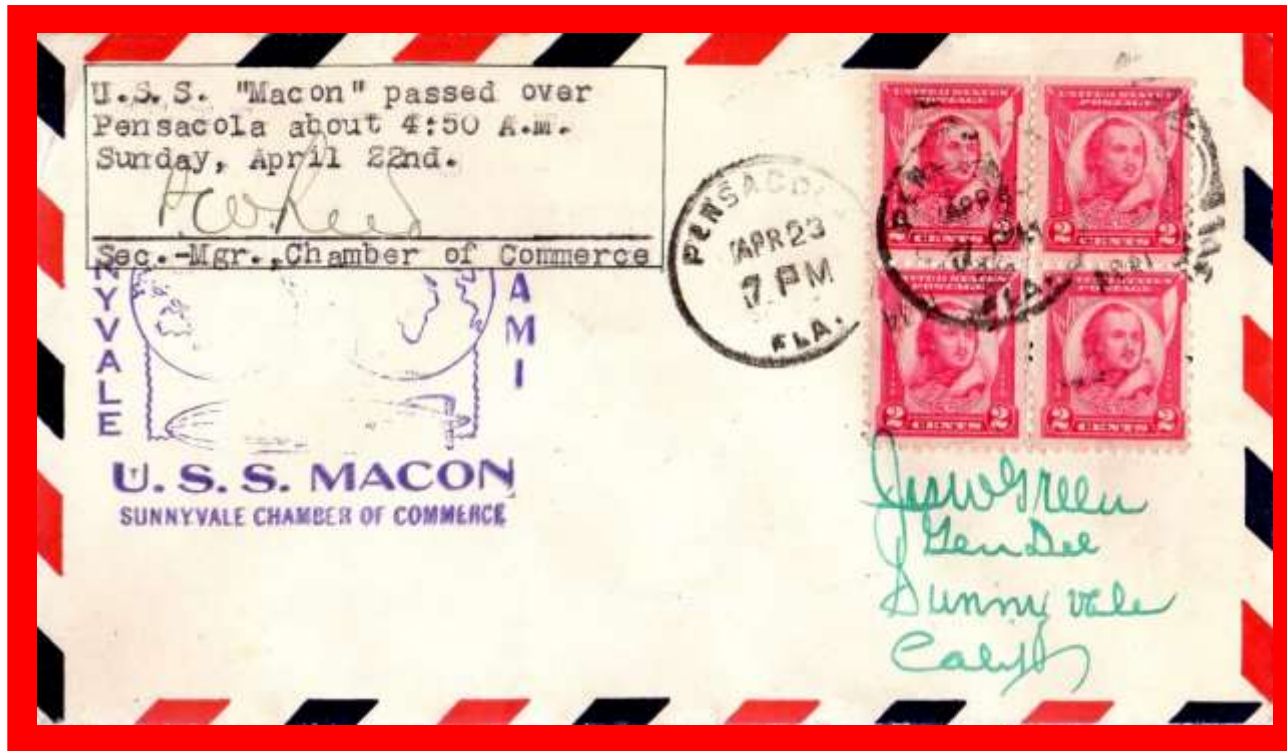 U.S.S. "Macon" passed over
Pensacola about 4:50 A.M.
Sunday, April 22nd.
Sec.-Mgr., Chamber of Commerce
NYVALE
AMI
U. S. S. MACON
SUNNYVALE CHAMBER OF COMMERCE
PENSACO
APR 23
7 PM
FLA.
UNITED STATES POSTAGE
2 CENTS 2
UNITED STATES POSTAGE
2 CENTS 2
UNITED STATES POSTAGE
2 CENTS 2
UNITED STATES POSTAGE
2 CENTS 2
APR
FLA.
Jess W Green
Gen Del
Sunny vale
Calif